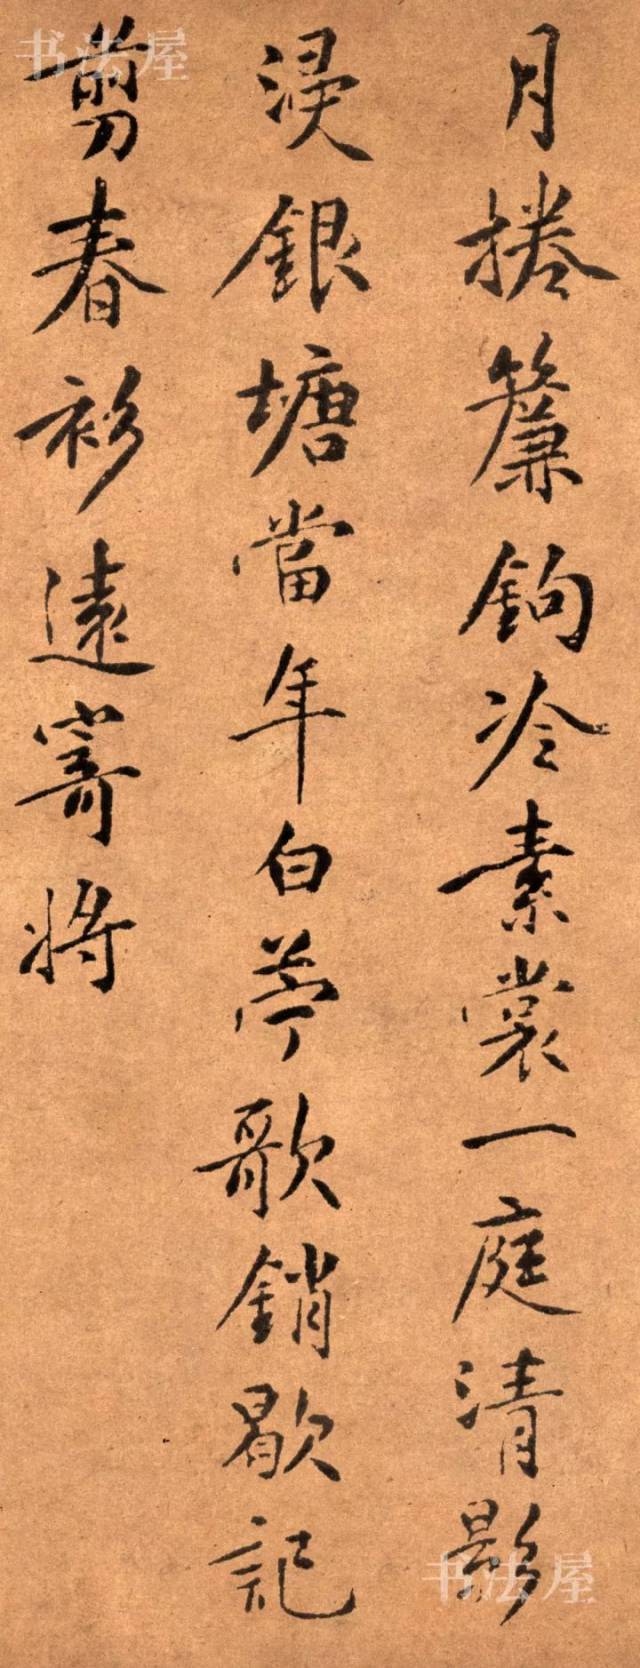 月捲簾鉤冷素裳一庭清影
浸銀塘當年白苧歌銷歇記
剪春衫遠寄將
书法屋
书法屋